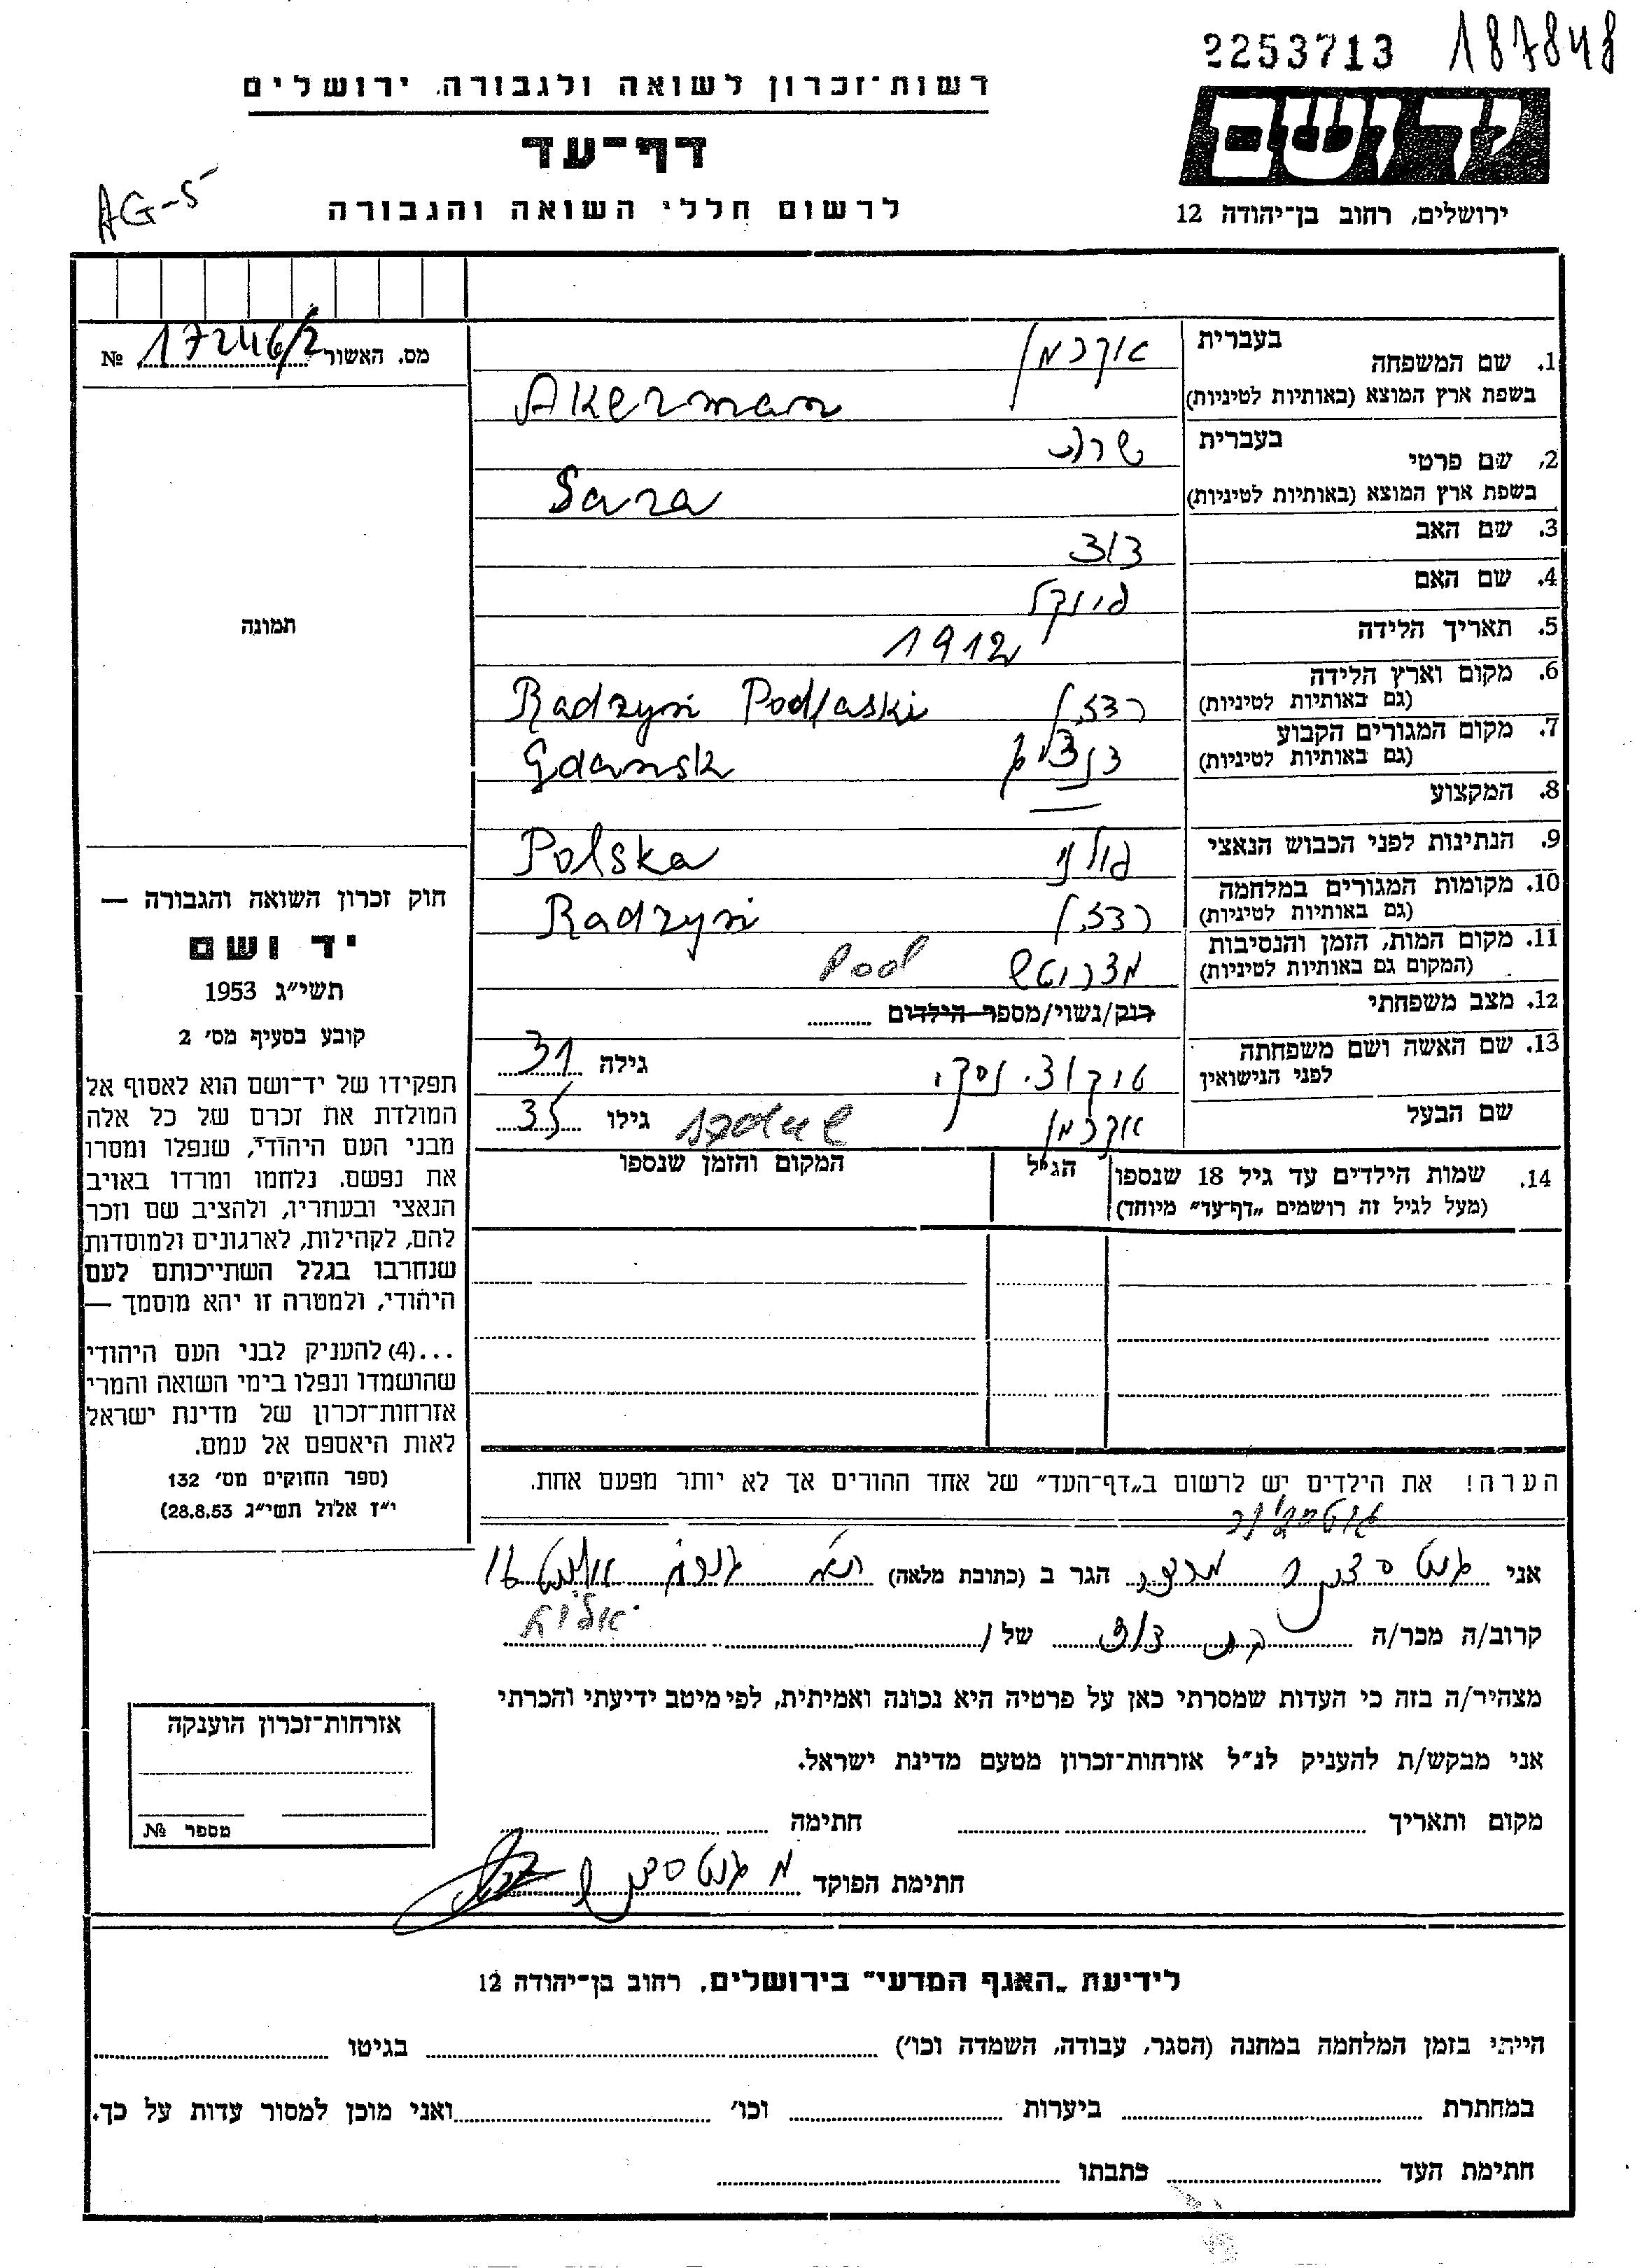 2253713 187848
רשות־זכרון לשואה ולגבורה, ירושלים
דף־עד
לרשום חללי השואה והגבורה
AG-5
יד ושם
ירושלים, רחוב בן־יהודה 12
מס. האשור 17246/2 №
תמונה
1. שם המשפחה בעברית אקרמן
בשפת ארץ המוצא (באותיות לטיניות) Akerman
2. שם פרטי בעברית שרה
בשפת ארץ המוצא (באותיות לטיניות) Sara
3. שם האב דוד
4. שם האם
5. תאריך הלידה 1912
6. מקום וארץ הלידה (גם באותיות לטיניות) רדזין Radzyń Podlaski
7. מקום המגורים הקבוע (גם באותיות לטיניות) דנציג Gdansk
8. המקצוע —
9. הנתינות לפני הכבוש הנאצי פולני Polska
10. מקומות המגורים במלחמה (גם באותיות לטיניות) רדזין Radzyń
11. מקום המות, הזמן והנסיבות (המקום גם באותיות לטיניות) Pod
12. מצב משפחתי רוק/נשוי/מספר הילדים
13. שם האשה ושם משפחתה לפני הנישואין גילה 31
שם הבעל אקרמן גילו 35
14. שמות הילדים עד גיל 18 שנספו (מעל לגיל זה רושמים „דף־עד” מיוחד) הגיל המקום והזמן שנספו
חוק זכרון השואה והגבורה —
יד ושם
תשי״ג 1953
קובע בסעיף מס׳ 2
תפקידו של יד־ושם הוא לאסוף אל
המולדת את זכרם של כל אלה
מבני העם היהודי, שנפלו ומסרו
את נפשם, נלחמו ומרדו באויב
הנאצי ובעוזריו, ולהציב שם וזכר
להם, לקהילות, לארגונים ולמוסדות
שנחרבו בגלל השתייכותם לעם
היהודי, ולמטרה זו יהא מוסמך —
...(4) להעניק לבני העם היהודי
שהושמדו ונפלו בימי השואה והמרי
אזרחות־זכרון של מדינת ישראל
לאות היאספם אל עמם.
(ספר החוקים מס׳ 132
י״ז אלול תשי״ג 28.8.53)
הערה! את הילדים יש לרשום ב„דף־העד” של אחד ההורים אך לא יותר מפעם אחת.
אני הגר ב (כתובת מלאה)
קרוב/ה מכר/ה של
מצהיר/ה בזה כי העדות שמסרתי כאן על פרטיה היא נכונה ואמיתית, לפי מיטב ידיעתי והכרתי
אני מבקש/ת להעניק לנ״ל אזרחות־זכרון מטעם מדינת ישראל.
מקום ותאריך חתימה
חתימת הפוקד
אזרחות־זכרון הוענקה
מספר №
לידיעת „האגף המדעי” בירושלים, רחוב בן־יהודה 12
הייתי בזמן המלחמה במחנה (הסגר, עבודה, השמדה וכו׳) בגיטו
במחתרת ביערות וכו׳ ואני מוכן למסור עדות על כך.
חתימת העד כתבתו